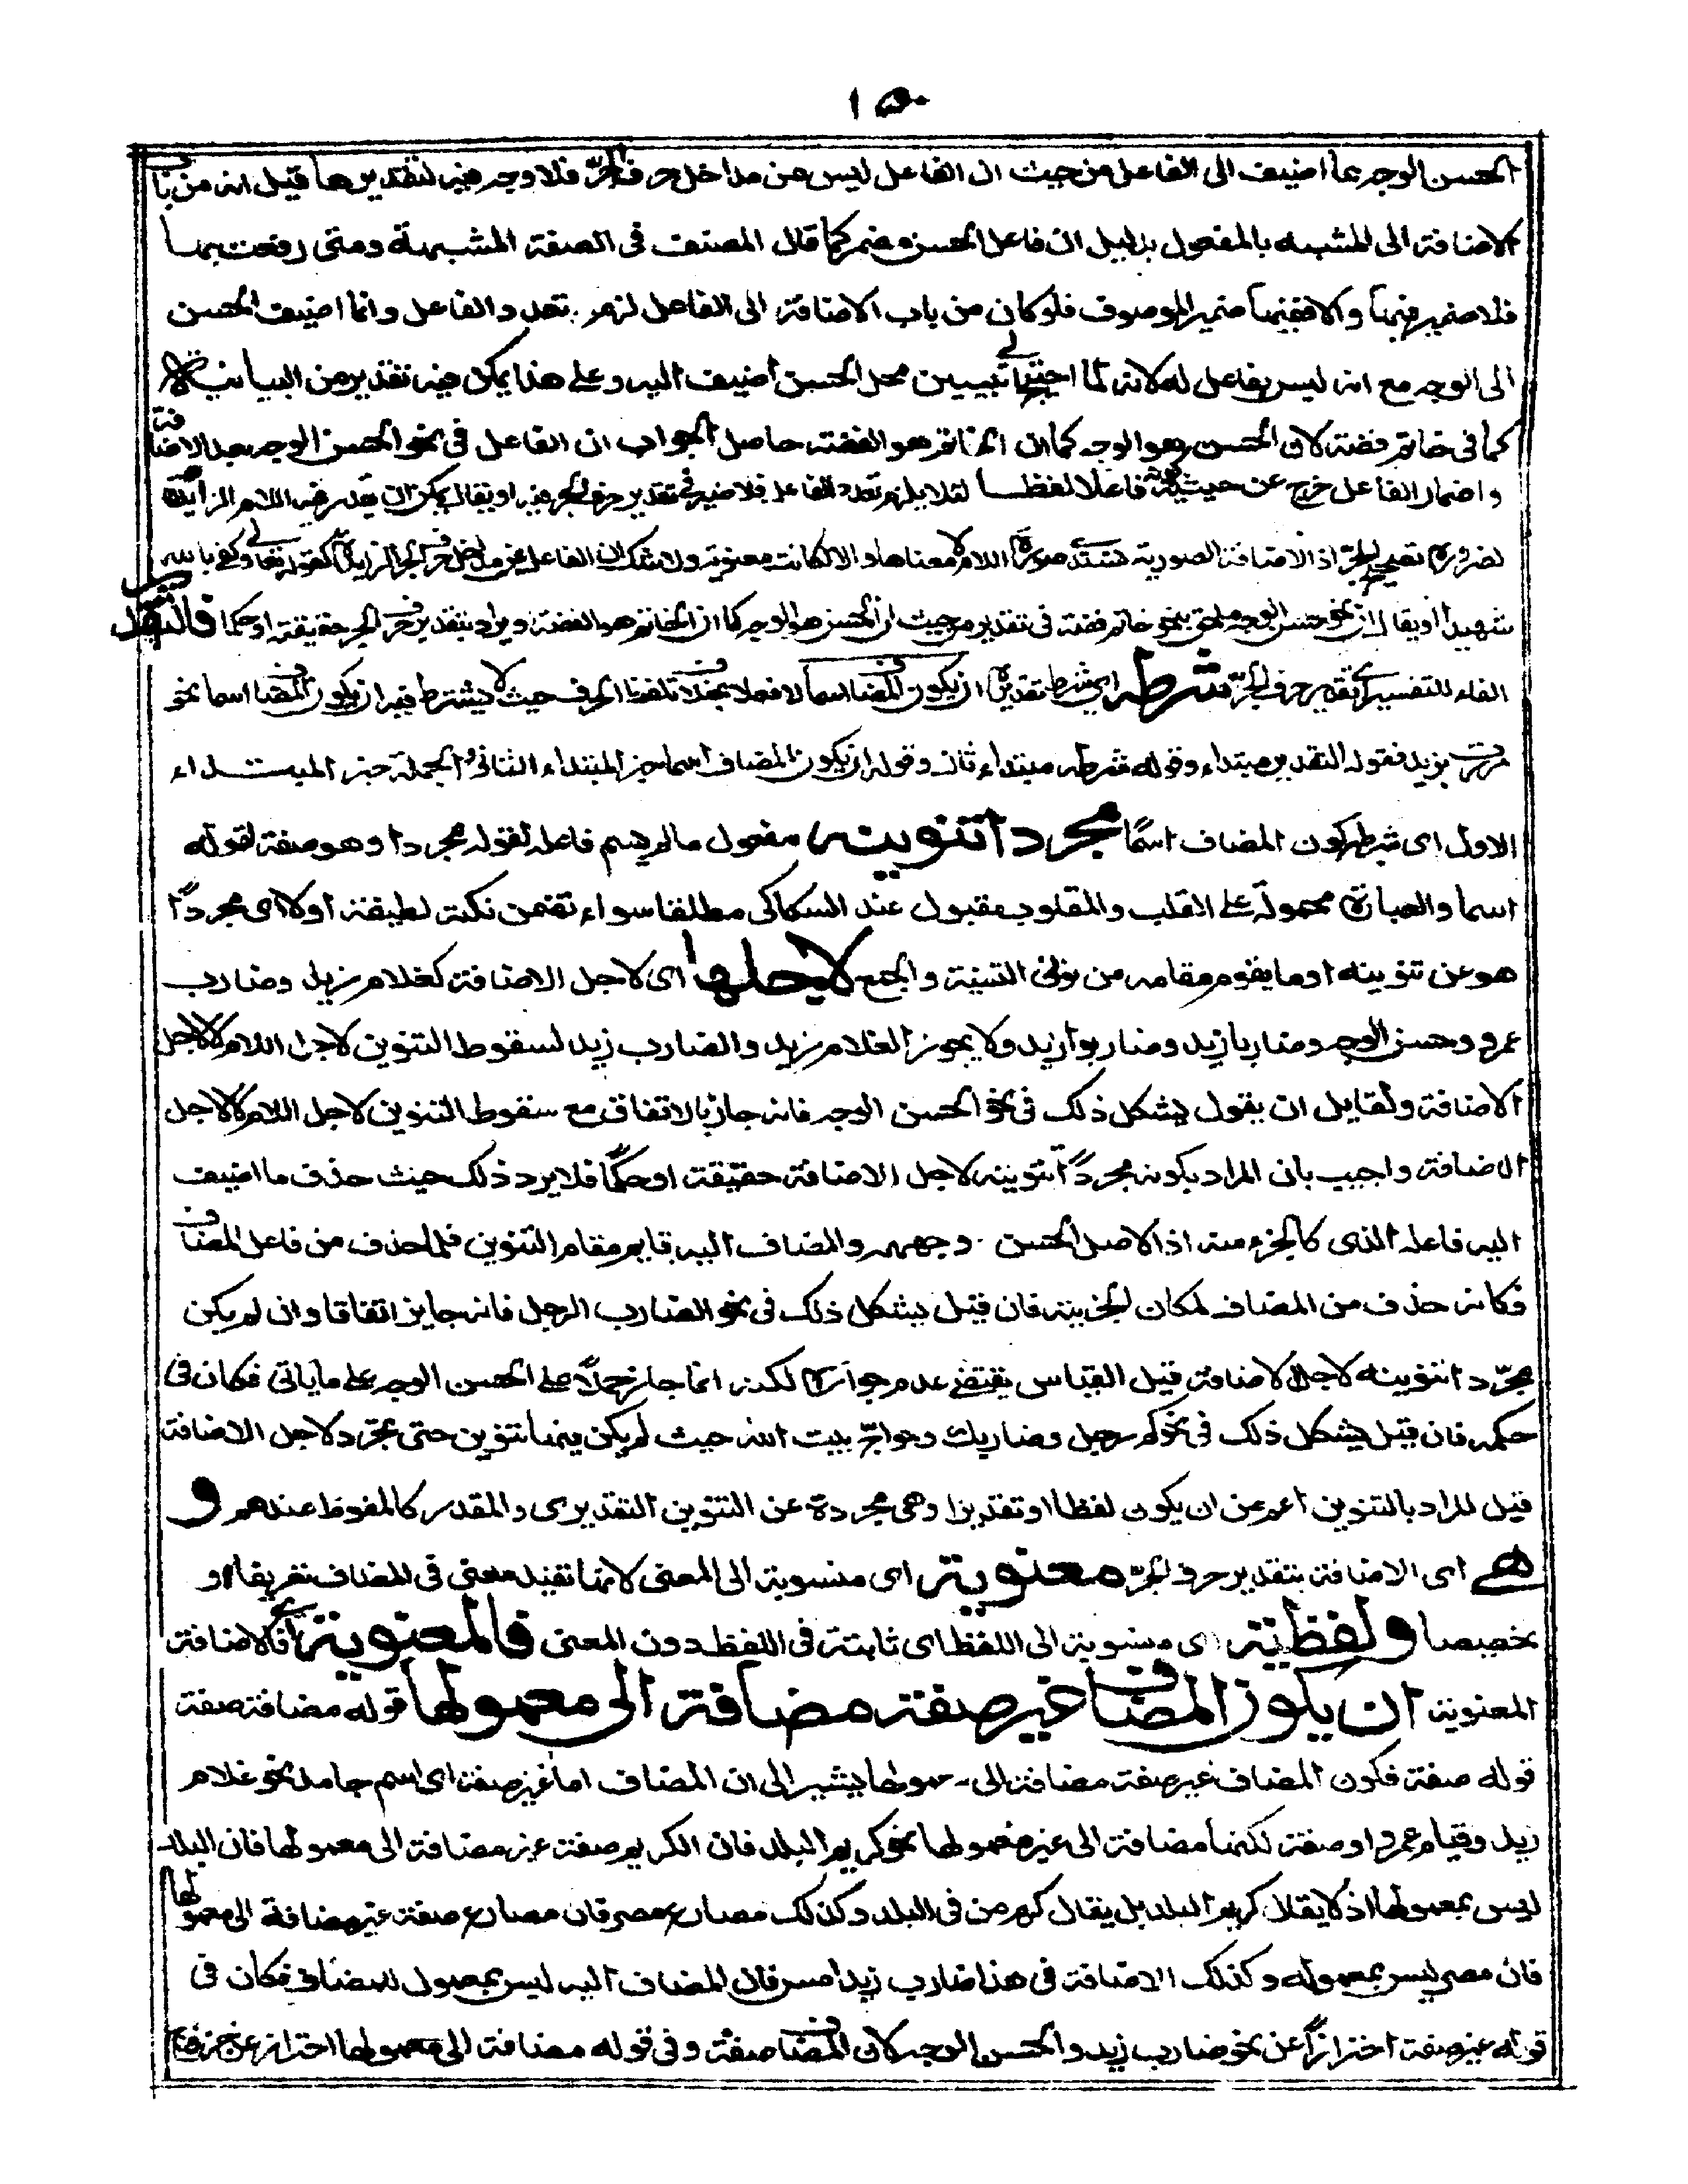 ١٥٠
الحسن الوجه عما اضيف الى الفاعل من حيث ان الفاعل ليس من مداخل حرف الجرّ فلا وجه فيه لتقديرها قيل انه من باب
الاضافة الى المشبه بالمفعول بدليل ان فاعل الحسن مضمر كما قال المصنف فى الصفة المشبهة ومتى رفعت بها
فلا ضمير فيها والا ففيها ضمير الموصوف فلو كان من باب الاضافة الى الفاعل لزم تعدد الفاعل وانما اضيف الحسن
الى الوجه مع انه ليس بفاعل له لانه لما احتيج الى تبيين محل الحسن اضيف اليه وعلى هذا يمكن فيه تقدير من البيانية
كما فى خاتم فضة لان الحسن هو الوجه كما ان الخاتم هو الفضة حاصل الجواب ان الفاعل فى نحو الحسن الوجه بعد الاضافة
واضمار الفاعل خرج عن حيث كونه فاعلا لفظا لئلا يلزم تعدد الفاعل فلا ضير فى تقدير حرف الجر فيه او يقال يمكن ان يقدر فيه اللام الزائدة
لضرورة تصحيح الجرّ اذ الاضافة الصورية تستدعى صورة اللام لا معناها والا لكانت معنوية ولا شك ان الفاعل من مداخل حرف الجر الزايد كقوله تعالى وكفى بالله
شهيدا او يقال ان نحو حسن الوجه ملحق بنحو خاتم فضة فى تقدير من حيث ان الحسن هو الوجه كما ان الخاتم هو الفضة ويراد بتقدير حرف الجر حقيقة او حكما فالتقدير
الفاء للتفسير اى تقدير حرف الجرّ شرطه اى شرط تقديره ان يكون المضاف اسما لا فعلا بخلاف تلفظ الحرف حيث لا يشترط فيه ان يكون المضاف اسما نحو
مررت بزيد فقوله التقدير مبتداء وقوله شرطه مبتداء ثان وقوله ان يكون المضاف اسما خبر المبتداء الثانى والجملة خبر المبتداء
الاول اى شرطه كون المضاف اسمًا مجردا تنوينه مفعول مالم يسم فاعله لقوله مجردا وهو صفة لقوله
اسما والعبارة محمولة على القلب والمقلوب مقبول عند السكاكى مطلقا سواء تضمن نكتة لطيفة اولا اى مجردًا
هو عن تنوينه او ما يقوم مقامه من نونى التثنية والجمع لاجلها اى لاجل الاضافة كغلام زيد وضارب
عمرو وحسن الوجه وضاربا زيد وضاربوا زيد ولا يجوز الغلام زيد والضارب زيد لسقوط التنوين لاجل اللام لا لاجل
الاضافة ولقايل ان يقول يشكل ذلك فى نحو الحسن الوجه فانه جاز بالاتفاق مع سقوط التنوين لاجل اللام لا لاجل
الاضافة واجيب بان المراد بكونه مجردًا تنوينه لاجل الاضافة حقيقة او حكمًا فلا يرد ذلك حيث حذف ما اضيف
اليه فاعله الذى كالجزء منه اذ الاصل الحسن وجهه والمضاف اليه قايم مقام التنوين فلما حذف من فاعل المضاف
فكانه حذف من المضاف لمكان الجزيئة فان قيل يشكل ذلك فى نحو الضارب الرجل فانه جايز اتفاقا وان لم يكن
مجرّدا تنوينه لاجل الاضافة قيل القياس يقتضى عدم جوازه لكنه انما جاز حملًا على الحسن الوجه على ما ياتى فكان فى
حكمه فان قيل يشكل ذلك فى نحو كم رجل وضاربك وحواجّ بيت الله حيث لم يكن فيها تنوين حتى تجرّد لاجل الاضافة
قيل المراد بالتنوين اعم من ان يكون لفظا او تقديرا وهى مجردة عن التنوين التقديرى والمقدر كالملفوظ عندهم و
هى اى الاضافة بتقدير حرف الجرّ معنوية اى منسوبة الى المعنى لانها تفيد معنى فى المضاف تعريفا او
تخصيصا ولفظية اى منسوبة الى اللفظ اى ثابتة فى اللفظ دون المعنى فالمعنوية اى فالاضافة
المعنوية ان يكون المضاف غير صفة مضافة الى معمولها قوله مضافة صفة
قوله صفة فكون المضاف غير صفة مضافة الى معمولها يشير الى ان المضاف اما غير صفة اى اسم جامد نحو غلام
زيد وقيام عمرو او صفة لكنها مضافة الى غير معمولها نحو كريم البلد فان الكريم صفة غير مضافة الى معمولها فان البلد
ليس بمعمولها اذ لا يقال كريم البلد بل يقال كرم من فى البلد وكذلك مصارع مصر فان مصارع صفة غير مضافة الى معمولها
فان مصر ليس بمعموله وكذلك الاضافة فى هذا ضارب زيد امس فان المضاف اليه ليس بمعمول للمضاف فكان فى
قوله غير صفة احترازًا عن نحو ضارب زيد والحسن الوجه لان المضاف صفة وفى قوله مضافة الى معمولها احتراز عن